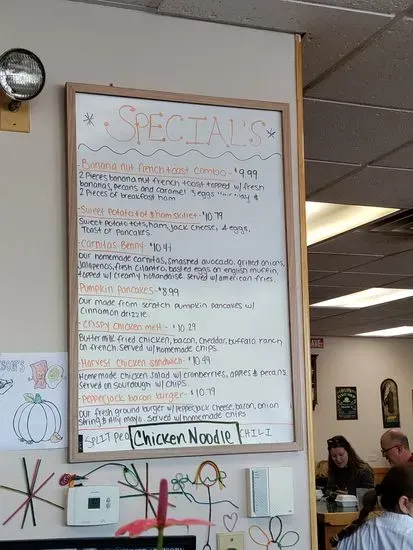 *SPECIAL'S*
-Banana nut french toast combo- $9.99
2 Pieces banana nut french toast topped w/ fresh
bananas, pecans and caramel 3 eggs &
2 Pieces of breakfast ham
-Sweet potato tot $ ham skillet- $10.79
Sweet potato tots, ham, jack cheese, 2 eggs,
Toast or pancakes.
-Carnitas Benny- $10.41
Our homemade carnitas, smashed avocado, grilled onions,
jalapenos, fresh cilantro, basted eggs on english muffin,
topped w/ creamy holandaise. Served w/ american fries.
Pumpkin pancakes- $8.99
Our made from scratch pumpkin pancakes w/
Cinnamon drizzle.
-Crispy chicken melt- $10.29
Buttermilk fried chicken, bacon, cheddar, buffalo ranch
on french. Served w/ homemade chips.
Harvest chicken sandwich- $10.49
Homemade chicken salad w/ cranberries, apples & pecans
Served on sourdough w/ chips.
-Pepperjack bacon burger- $10.79
Our fresh ground burger w/ pepperjack cheese, bacon, onion
string & illy mayo. Served w/ homemade chips
SPLIT PEA Chicken Noodle CHILI